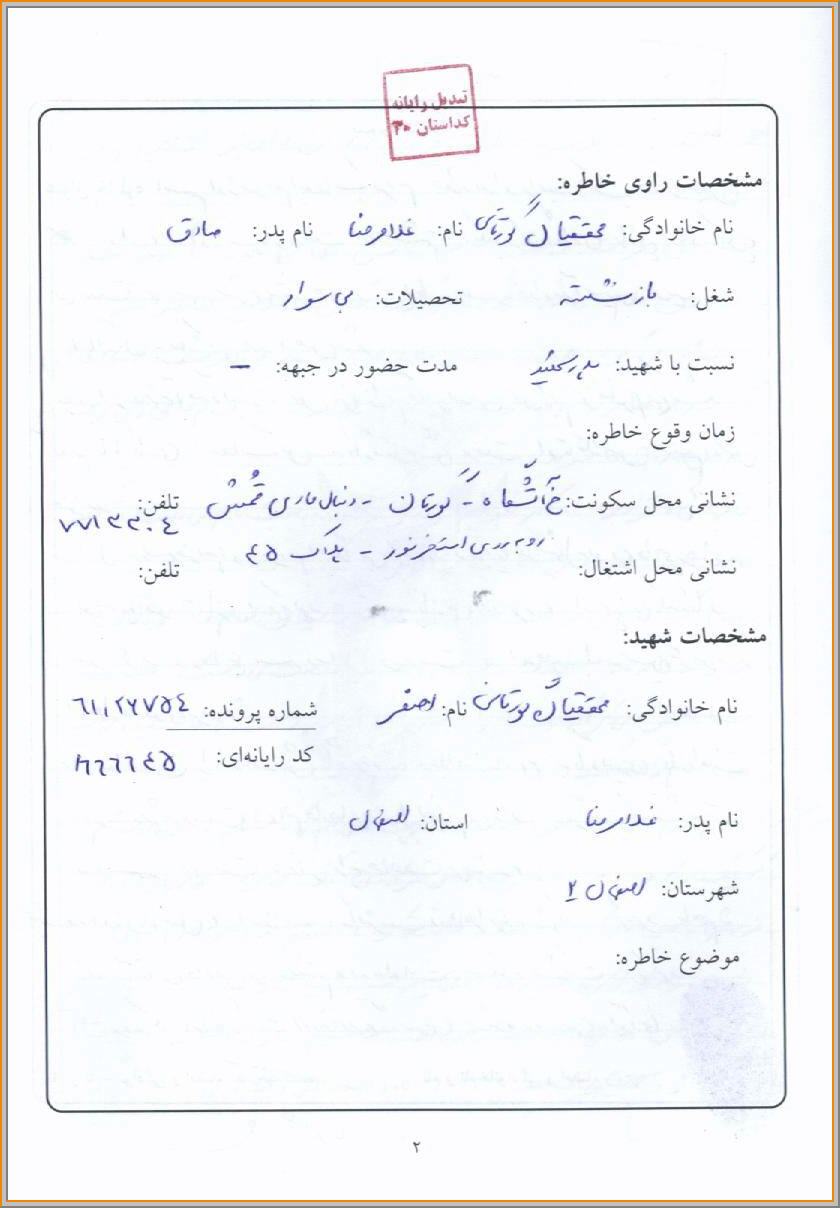 تبدیل رایانه
کداستان ۳۰
مشخصات راوی خاطره:
نام خانوادگی: محققیان گورتانی نام: غلامرضا نام پدر: صادق
شغل: بازنشسته تحصیلات: بی سواد
نسبت با شهید: پدر شهید مدت حضور در جبهه: –
زمان وقوع خاطره:
نشانی محل سکونت: خ آتشگاه – گورتان – دنبال مادی قمش تلفن:
۷۷۱۳۳۰۴
روبروی استخر نور – پلاک ۴۵
نشانی محل اشتغال: تلفن:
مشخصات شهید:
نام خانوادگی: محققیان گورتانی نام: اصغر شماره پرونده: ۶۱۱۲۶۷۵۴
کد رایانه‌ای: ۸۶۶۶۴۵
نام پدر: غلامرضا استان: اصفهان
شهرستان: اصفهان ۲
موضوع خاطره:
۲